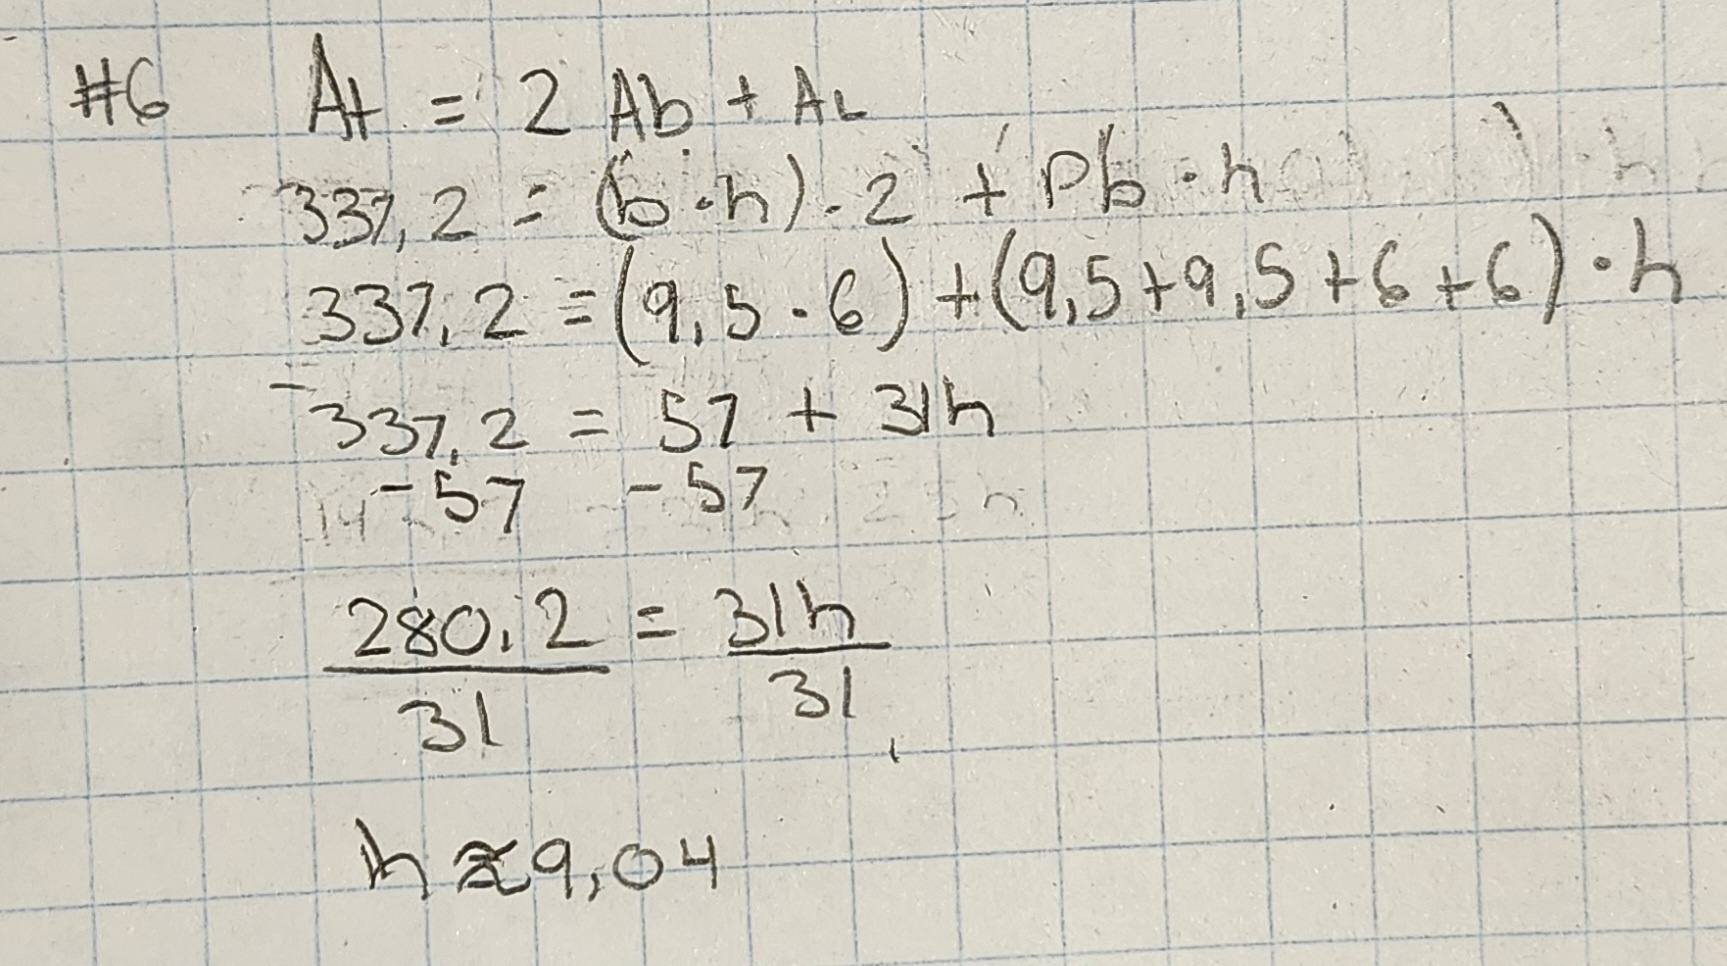 #6 At = 2 Ab + AL
337,2 = (b·h)·2 + Pb·h
337,2 = (9,5·6) + (9,5+9,5+6+6)·h
337,2 = 57 + 31h
-57 -57
280,2 = 31h
31 31
h ≈ 9,04